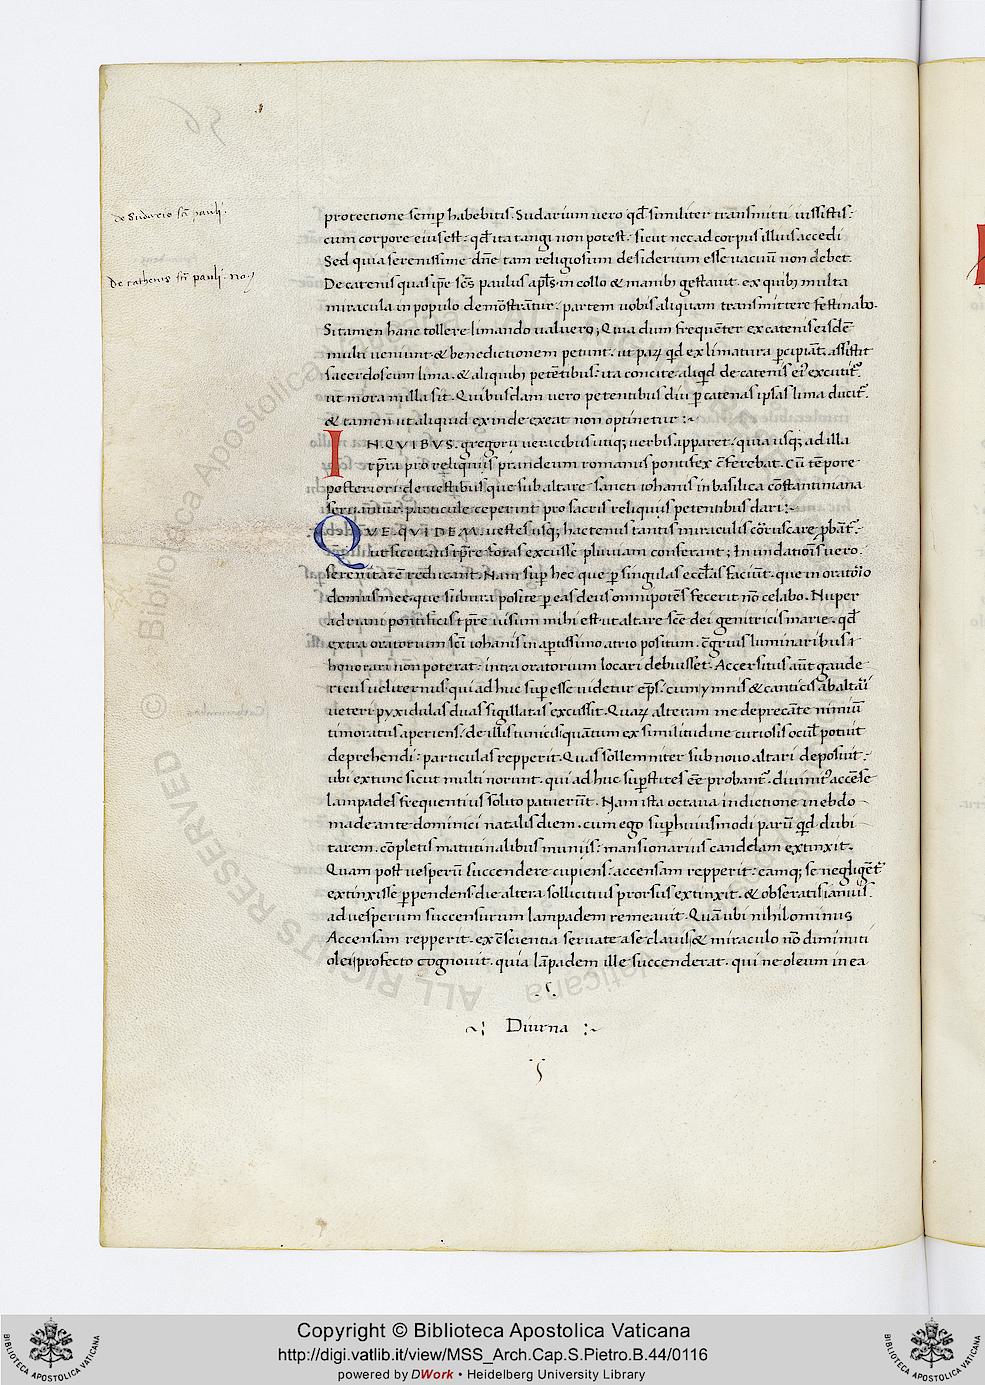 de Sudario sci pauli.
De cathenis sci pauli. no.
protectione semp habebitis. Sudarium uero qd similiter transmitti iussistis:
cum corpore eius est: qd ita tangi non potest: sicut nec ad corpus illius accedi
Sed quia serenissime dne tam religiosum desiderium esse uacuū non debet.
De catenis quas ipe scs paulus apls in collo & manibꝫ gestauit. ex quibꝫ multa
miracula in populo demōstrātur: partem uobis aliquam transmittere festinabo.
Si tamen hanc tollere limando ualuero; Quia dum frequēter ex catenis eisdē
multi ueniunt & benedictionem petunt. ut paꝝ qd ex limatura pcipiāt. assistit
sacerdos cum lima. & aliquibꝫ petētibus: ita concite aliqd de catenis ei excutit
ut mora nulla sit. Quibusdam uero petentibus diu p catenas ipsas lima ducit
& tamen ut aliquid exinde exeat non optinetur :~
INQVIBVS. gregorii ueracibus utiqꝫ uerbis apparet. quia usqꝫ ad illa
tpra pro reliquiis prandeum romanus pontifex cferebat. Cū tēpore
posteriori de uestibus que sub altare sancti iohanis in basilica cōstantiniana
seruantur: particule ceperint pro sacris reliquiis petentibus dari :~
QVE QVIDEM. uestes usqꝫ hactenus tantis miraculis cōruscare pbant.
ut siccitatis tpre foras excusse pluuiam conferant; Inundationis uero
serenitatē reducant. Nam sup hec que p singulas eccłas faciūt. que in oratorio
domus mee que subura posite p eas deus omnipotēs fecerit nō celabo. Nuper
adriani pontificis tpre uisum mihi est ut altare scē dei genitricis marie. qd
extra oratorium sci iohanis in aptissimo atrio positum. cgruis luminaribus
honorari non poterat: intra oratorium locari debuisset. Accersitus aūt gaude
ricus ueliternus qui adhuc sup esse uidetur eps: cum ymnis & canticis ab altari
ueteri pyxidulas duas sigillatas excussit. Quaꝝ alteram me deprecāte nimiū
timoratus aperiens: de illis tunicis quātum ex similitudine curiosis ocul potuit
deprehendi: particulas repperit. Quas sollemniter sub nouo altari deposuit:
ubi ex tunc sicut multi norunt. qui adhuc supstites ēē probant. diuinit accēse
lampades frequentius solito patuerūt. Nam ista octaua indictione in ebdo
made ante dominici natalis diem. cum ego sup huiusmodi parū qd dubi
tarem. cōpletis matutinalibus muniis: mansionarius candelam extinxit.
Quam post uesperū succendere cupiens: accensam repperit: eamqꝫ se negligēt
extinxisse ppendens die altera sollicitius prorsus extinxit. & obseratis ianuis.
ad uesperum succensurum lampadem remeauit. Quā ubi nihilominus
Accensam repperit. ex cscientia seruate a se clauis & miraculo nō diminuti
olei profecto cognouit. quia lāpadem ille succenderat. qui ne oleum in ea
~: Diurna :~
© Biblioteca Apostolica Vaticana
ALL RIGHTS RESERVED
BIBLIOTECA APOSTOLICA VATICANA
Copyright © Biblioteca Apostolica Vaticana
http://digi.vatlib.it/view/MSS_Arch.Cap.S.Pietro.B.44/0116
powered by DWork • Heidelberg University Library
BIBLIOTECA APOSTOLICA VATICANA